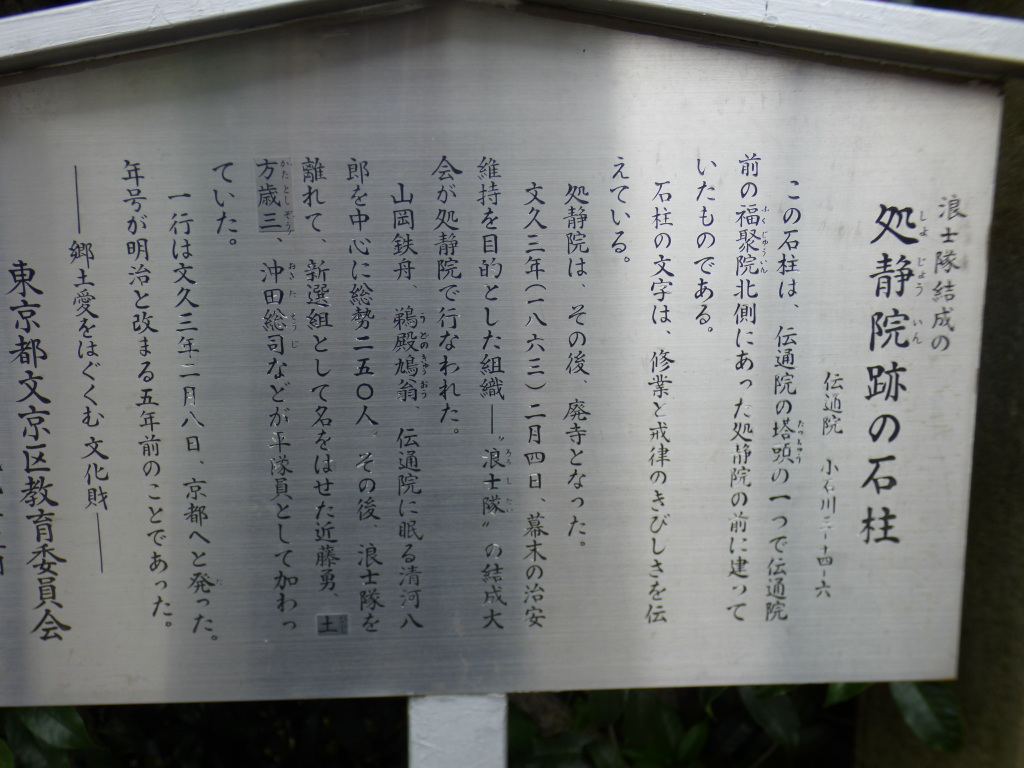 浪士隊結成の
処静院跡の石柱
伝通院 小石川三-十四-六
この石柱は、伝通院の塔頭の一つで伝通院
前の福聚院北側にあった処静院の前に建って
いたものである。
石柱の文字は、修業と戒律のきびしさを伝
えている。
処静院は、その後、廃寺となった。
文久三年(一八六三)二月四日、幕末の治安
維持を目的とした組織―〝浪士隊〟の結成大
会が処静院で行なわれた。
山岡鉄舟、鵜殿鳩翁、伝通院に眠る清河八
郎を中心に総勢二五〇人、その後、浪士隊を
離れて、新選組として名をはせた近藤勇、土
方歳三、沖田総司などが平隊員として加わっ
ていた。
一行は文久三年二月八日、京都へと発った。
年号が明治と改まる五年前のことであった。
―郷土愛をはぐくむ 文化財―
東京都文京区教育委員会